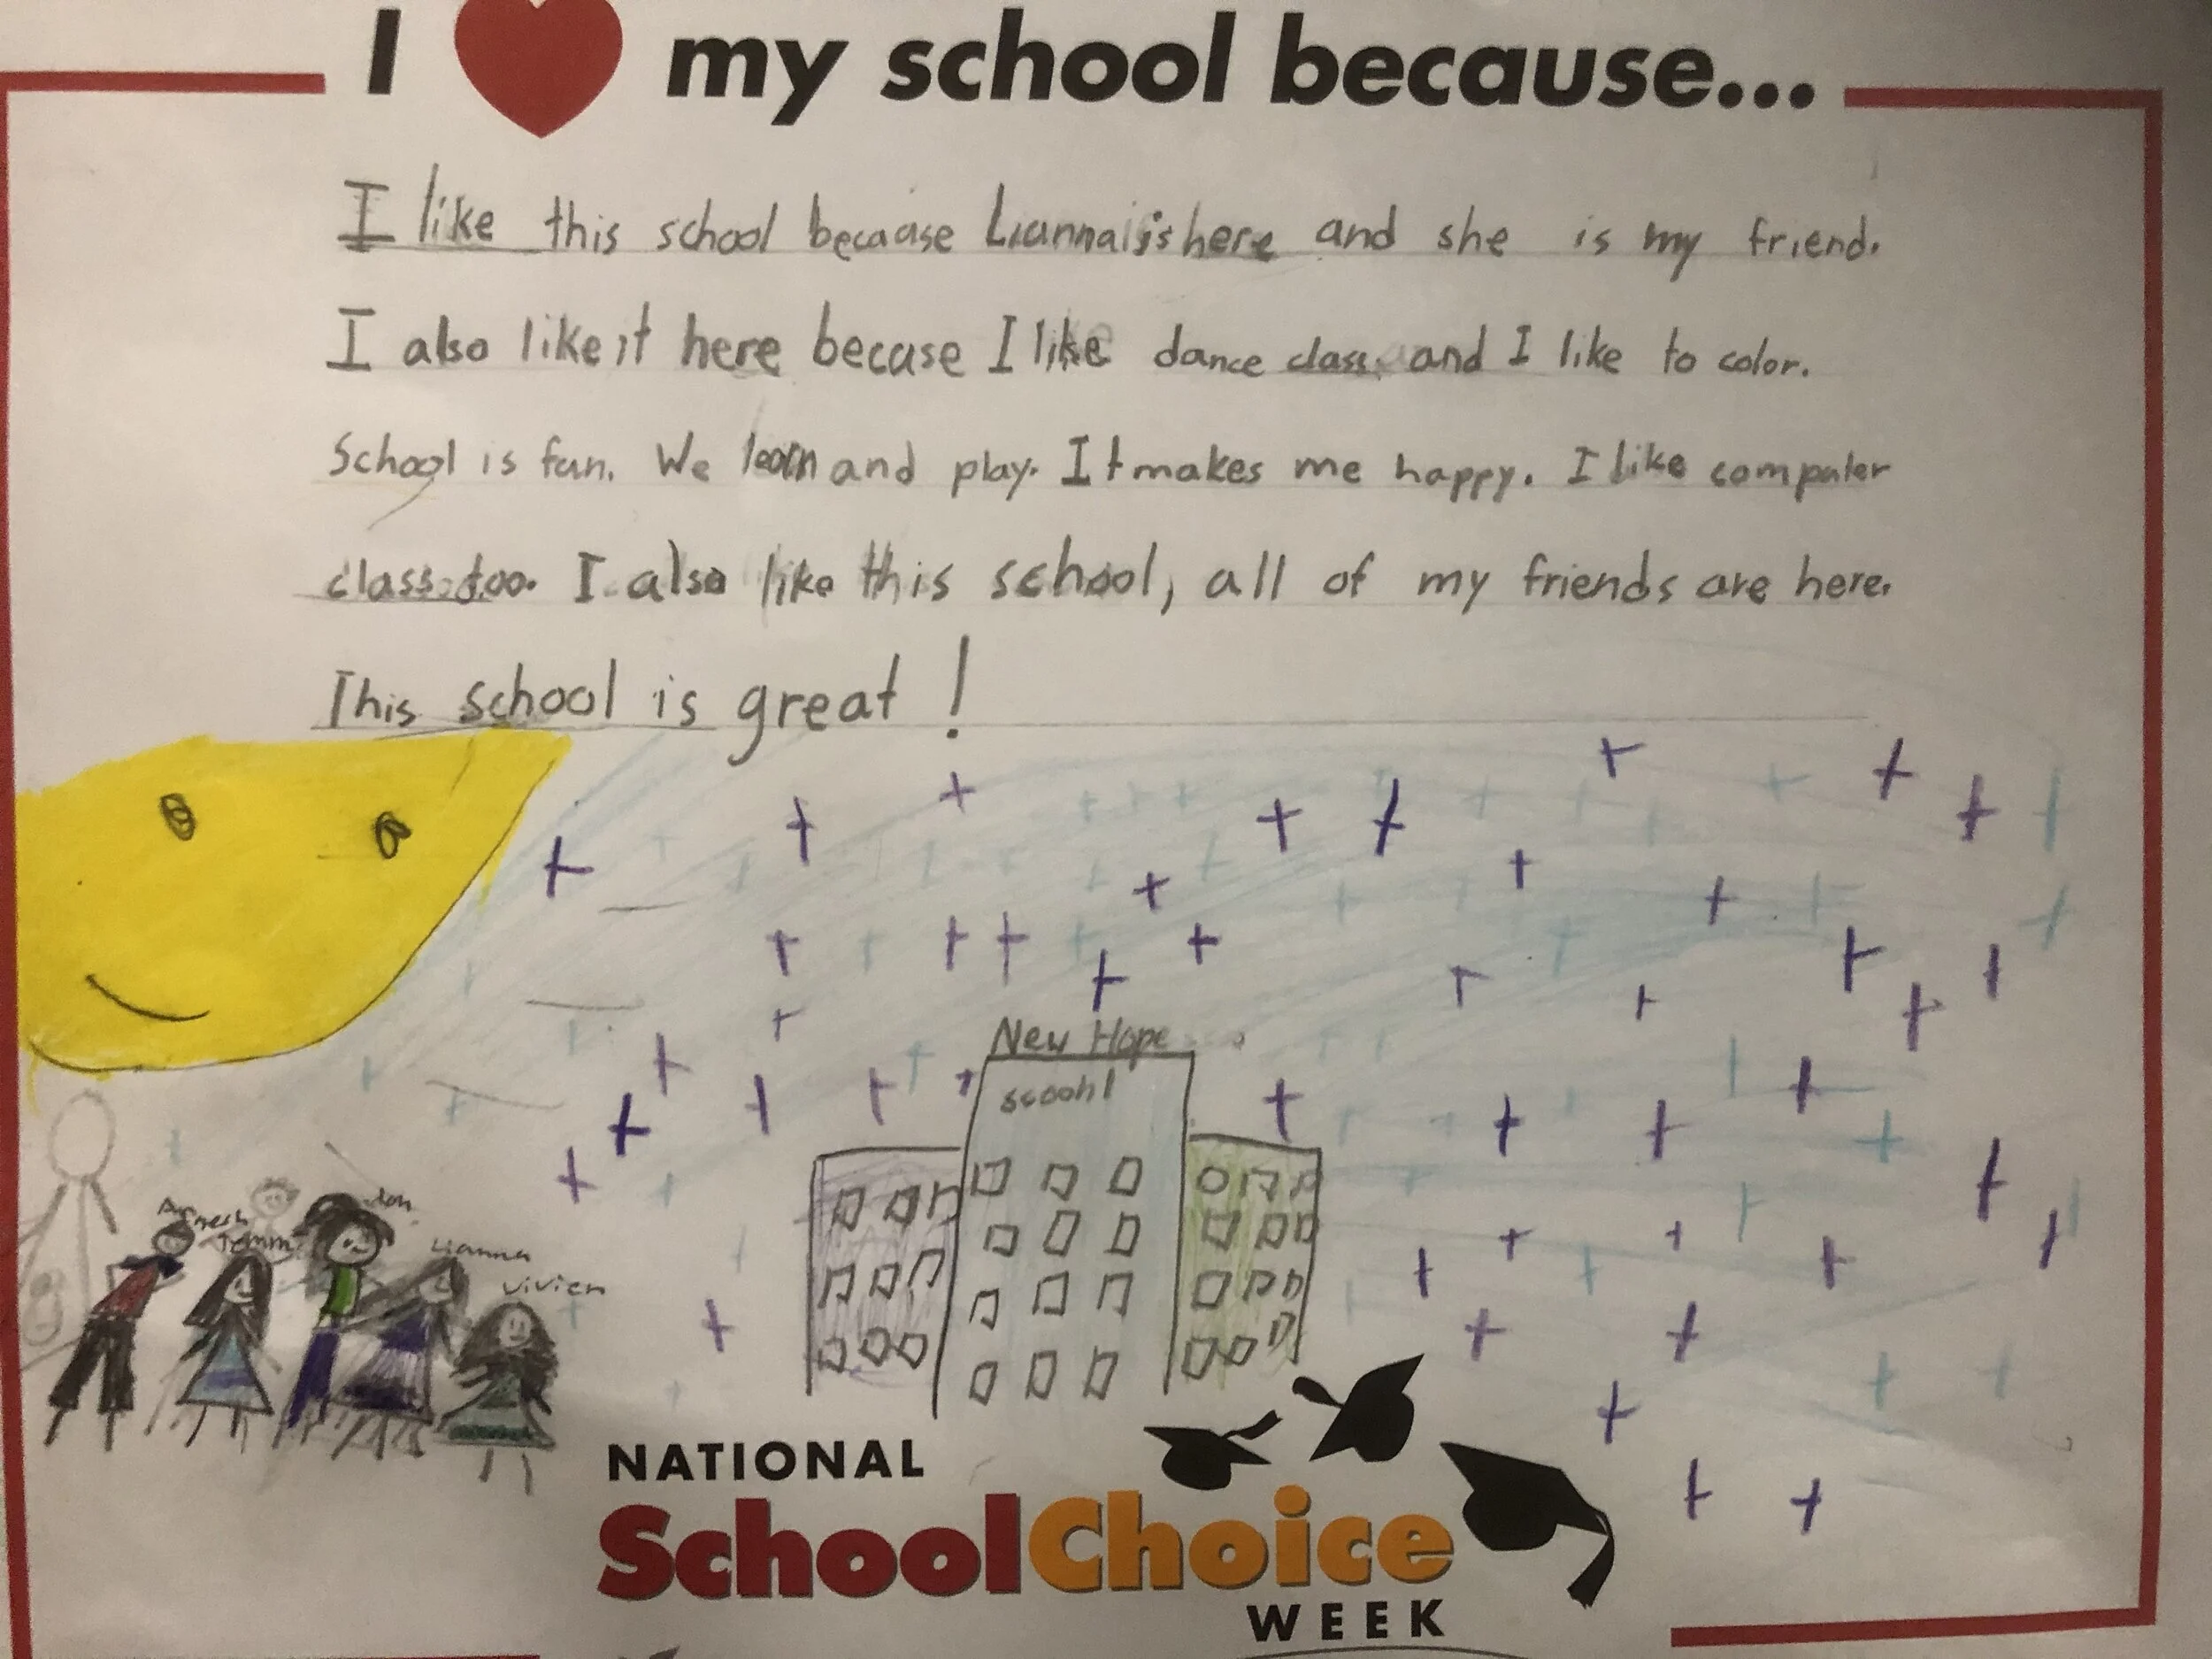 I ❤ my school because...
I like this school becaase Lianna is here and she is my friend.
I also like it here becuse I like dance class and I like to color.
School is fun. We learn and play. It makes me happy. I like computer
class too. I also like this school, all of my friends are here.
This school is great!
New Hope
scoohl
Lianna
vivien
NATIONAL
SchoolChoice
WEEK